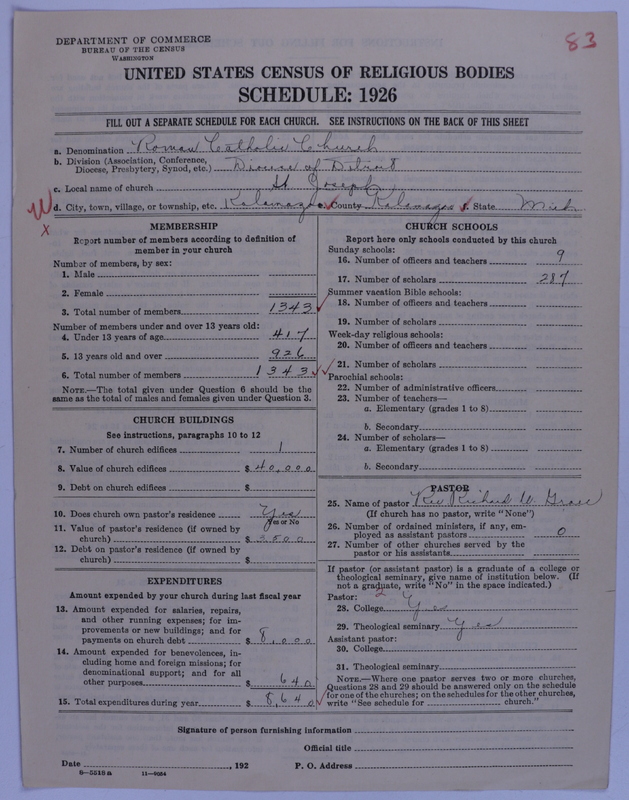 DEPARTMENT OF COMMERCE
BUREAU OF THE CENSUS
WASHINGTON
83
UNITED STATES CENSUS OF RELIGIOUS BODIES
SCHEDULE: 1926
FILL OUT A SEPARATE SCHEDULE FOR EACH CHURCH. SEE INSTRUCTIONS ON THE BACK OF THIS SHEET
a. Denomination Roman Catholic Church
b. Division (Association, Conference, Diocese, Presbytery, Synod, etc.) Diocese of Detroit
c. Local name of church St Joseph
d. City, town, village, or township, etc. Kalamazoo e. County Kalamazoo f. State Mich
W
X
MEMBERSHIP
Report number of members according to definition of
member in your church
Number of members, by sex:
1. Male
2. Female
3. Total number of members 1343
Number of members under and over 13 years old:
4. Under 13 years of age 417
5. 13 years old and over 926
6. Total number of members 1343
NOTE.—The total given under Question 6 should be the
same as the total of males and females given under Question 3.
CHURCH BUILDINGS
See instructions, paragraphs 10 to 12
7. Number of church edifices 1
8. Value of church edifices $ 40,000
9. Debt on church edifices $
10. Does church own pastor's residence Yes
Yes or No
11. Value of pastor's residence (if owned by
church) $ 3500
12. Debt on pastor's residence (if owned by
church) $
EXPENDITURES
Amount expended by your church during last fiscal year
13. Amount expended for salaries, repairs,
and other running expenses; for im-
provements or new buildings; and for
payments on church debt $ 8,000
14. Amount expended for benevolences, in-
cluding home and foreign missions; for
denominational support; and for all
other purposes $ 640
15. Total expenditures during year $ 8,640
CHURCH SCHOOLS
Report here only schools conducted by this church
Sunday schools:
16. Number of officers and teachers 9
17. Number of scholars 287
Summer vacation Bible schools:
18. Number of officers and teachers
19. Number of scholars
Week-day religious schools:
20. Number of officers and teachers
21. Number of scholars
Parochial schools:
22. Number of administrative officers
23. Number of teachers—
a. Elementary (grades 1 to 8)
b. Secondary
24. Number of scholars—
a. Elementary (grades 1 to 8)
b. Secondary
PASTOR
25. Name of pastor Rev Richard W. Grace
(If church has no pastor, write "None")
26. Number of ordained ministers, if any, em-
ployed as assistant pastors 0
27. Number of other churches served by the
pastor or his assistants
If pastor (or assistant pastor) is a graduate of a college or
theological seminary, give name of institution below. (If
not a graduate, write "No" in the space indicated.)
Pastor:
28. College Yes
29. Theological seminary Yes
Assistant pastor:
30. College
31. Theological seminary
NOTE.—Where one pastor serves two or more churches,
Questions 28 and 29 should be answered only on the schedule
for one of the churches; on the schedules for the other churches,
write "See schedule for church."
Signature of person furnishing information
Official title
Date , 192 P. O. Address
8—5518a 11—9034